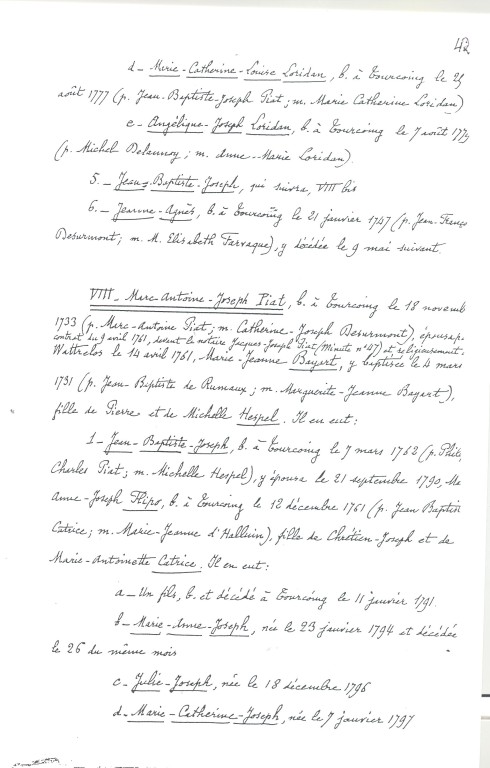 42
d_ Marie-Catherine-Louise Loridan, b. à Tourcoing le 25
août 1777 (p. Jean-Baptiste-Joseph Piat; m. Marie Catherine Loridan)
e_ Angélique-Joseph Loridan, b. à Tourcoing le 7 août 1779
(p. Michel Delannoy; m. Anne-Marie Loridan).
5._ Jean-Baptiste-Joseph, qui suivra, VIII bis
6._ Jeanne-Agnès, b. à Tourcoing le 21 janvier 1747 (p. Jean-Franço
Desurmont; m. M. Elisabeth Farvaque), y décédée le 9 mai suivant.
VIII_ Marc-Antoine-Joseph Piat, b. à Tourcoing le 18 novemb
1733 (p. Marc-Antoine Piat; m. Catherine-Joseph Desurmont), épousa p.
contrat du 9 avril 1761, devant le notaire Jacques-Joseph Piat (Minute n° 47) et religieusement.
Wattrelos le 14 avril 1761, Marie-Jeanne Bayart, y baptisée le 4 mars
1731 (p. Jean-Baptiste de Rumaux; m. Marguerite-Jeanne Bayart),
fille de Pierre et de Michelle Hespel. Il en eut:
1_ Jean-Baptiste-Joseph, b. à Tourcoing le 7 mars 1762 (p. Phili
Charles Piat; m. Michelle Hespel), y épousa le 21 septembre 1790, Me
Anne-Joseph Flipo, b. à Tourcoing le 12 décembre 1761 (p. Jean Baptist
Catrice; m. Marie-Jeanne d'Halluin), fille de Chrétien-Joseph et de
Marie-Antoinette Catrice. Il en eut:
a_ Un fils, b. et décédé à Tourcoing le 11 janvier 1791.
b_ Marie-Anne-Joseph, née le 23 janvier 1794 et décédée
le 26 du même mois
c_ Julie-Joseph, née le 18 décembre 1796
d_ Marie-Catherine-Joseph, née le 7 janvier 1797